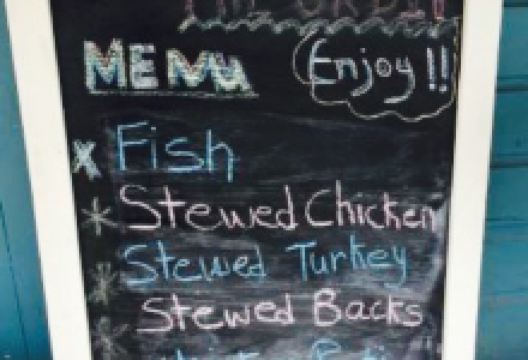 MENU Enjoy!!
x Fish
* Stewed Chicken
* Stewed Turkey
Stewed Backs